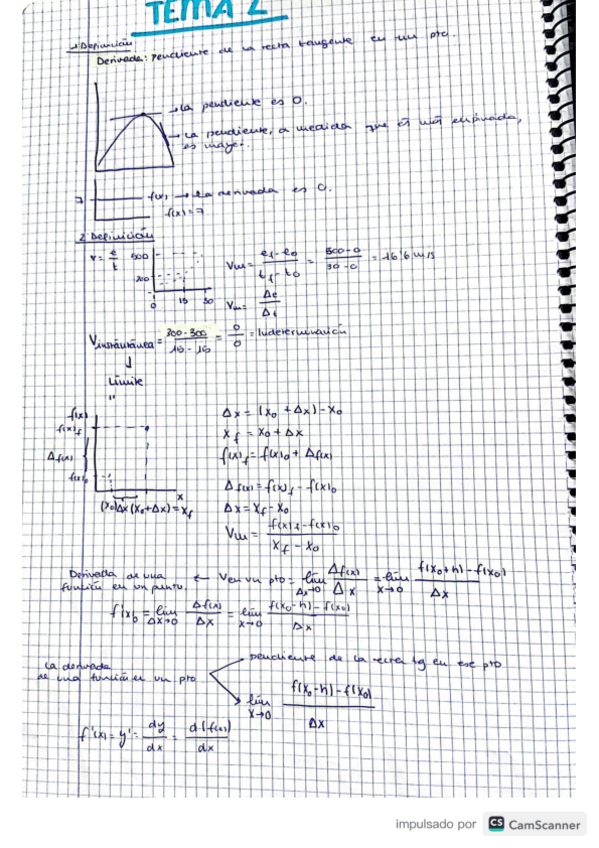 TEMA 2
1 Definición
Derivada: pendiente de la recta tangente en un pto.
→ la pendiente es 0.
→ La pendiente, a medida que es más empinada,
es mayor.
7 f(x) → la derivada es 0.
f(x)=7
2 Definición
v = e/t 500 200 0 15 30
Vm = (ef - e0)/(tf - t0) = (500-0)/(30-0) = 16'6 m/s
Vm = Δe/Δt
Vinstantánea = (300-300)/(15-15) = 0/0 = Indeterminación
↓
Límite
"
f(x)
f(x)f
Δf(x)
f(x)0
x
(x0) Δx (x0+Δx) = xf
Δx = (x0 + Δx) - x0
xf = x0 + Δx
f(x)f = f(x)0 + Δf(x)
Δf(x) = f(x)f - f(x)0
Δx = xf - x0
Vm = (f(x)f - f(x)0)/(xf - x0)
Derivada de una
función en un punto. ← V en un pto = lim Δx→0 Δf(x)/Δx = lim x→0 (f(x0+h) - f(x0))/Δx
f'(x)0 = lim Δx→0 Δf(x)/Δx = lim x→0 (f(x0-h) - f(x0))/Δx
La derivada
de una función en un pto
pendiente de la recta tg en ese pto
lim x→0 (f(x0-h) - f(x0))/Δx
f'(x) = y' = dy/dx = d(f(x))/dx
impulsado por CS CamScanner